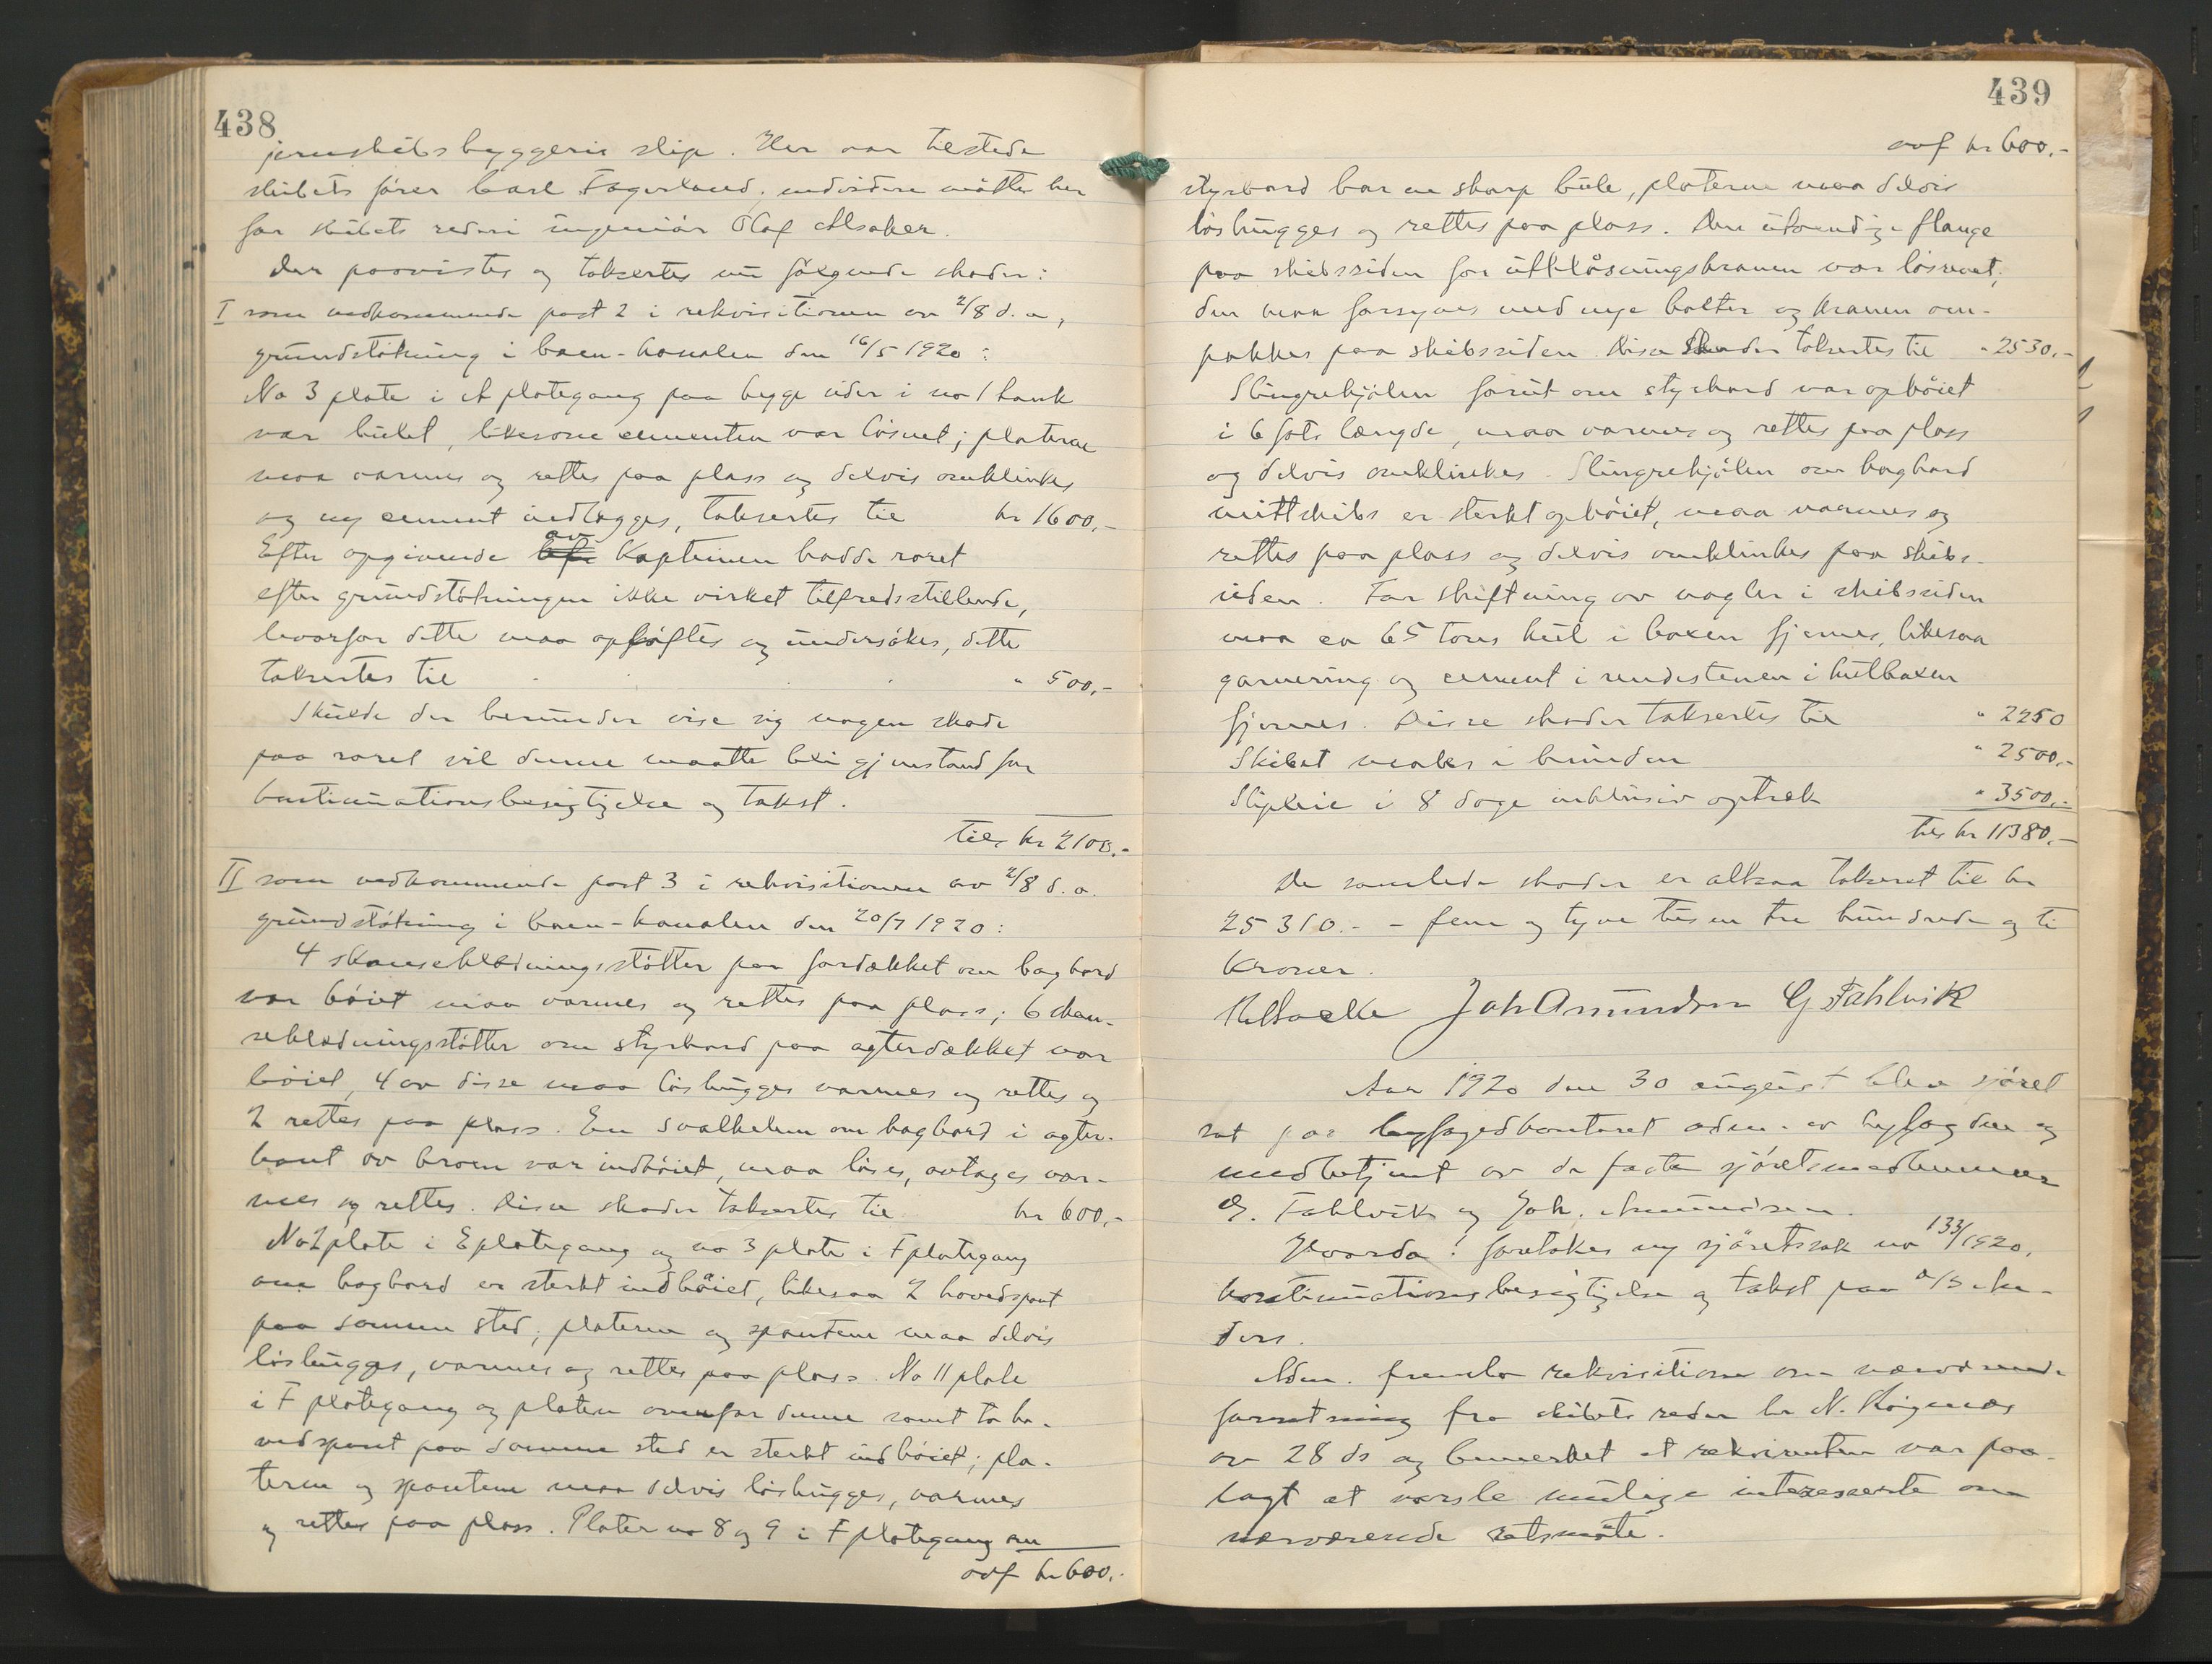 438
jernskibsbyggeris slip. Her var tilstede
skibets fører Carl Fagerland, endvidere møtte her
for skibets rederi ingeniør Olaf Alsaker.
Der paavistes og taksertes nu følgende skader:
I som vedkommende post 2 i rekvisitionen av 2/8 d. a,
grundstøtning i Caen-kanalen den 16/5 1920:
No 3 plate i A plategang paa begge sider i no 1 tank
var bulet, likesom cementen var løsnet; platerne
maa varmes og rettes paa plass og delvis omklinkes
og ny cement indlægges, taksertes til kr 1600,-
Efter opgivende av Kapteinen hadde roret
efter grundstøtningen ikke virket tilfredsstillende,
hvorfor dette maa opløftes og undersøkes, dette
taksertes til " 500,-
Skulde der herunder vise sig nogen skade
paa roret vil denne maatte bli gjenstand for
kontinuationsbesigtigelse og takst.
tils kr 2100.-
II som vedkommende post 3 i rekvisitionen av 2/8 d. a.
grundstøtning i Caen-kanalen den 20/7 1920:
4 skanseklædningsstøtter paa fordækket om bagbord
var bøiet maa varmes og rettes paa plass; 6 skan-
seklædningsstøtter om styrbord paa agterdækket var
bøiet, 4 av disse maa løshugges varmes og rettes og
2 rettes paa plass. En svalkelem om bagbord i agter-
kant av broen var indbøiet, maa løses, avtages var-
mes og rettes. Disse skader taksertes til kr 600,-
No 2 plate i E plategang og no 3 plate i F plategang
om bagbord er sterkt indbøiet, likesaa 2 hovedspant
paa samme sted; platerne og spantene maa delvis
løshugges, varmes og rettes paa plass. No 11 plate
i F plategang og platen ovenfor denne samt to ho-
vedspant paa samme sted er sterkt indbøiet; pla-
terne og spantene maa delvis løshugges, varmes
og rettes paa plass. Plater no 8 og 9 i F plategang om
ovf kr 600.-
439
ovf kr 600.-
styrbord har en skarp bule, platerne maa delvis
løshugges og rettes paa plass. Den utvendige flange
paa skibssiden for utblåsningskranen var løsrevet,
den maa forsynes med nye bolter og kranen om-
pakkes paa skibssiden. Disse skader taksertes til " 2530.-
Slingrekjølen forut om styrbord var opbøiet
i 6 fots længde, maa varmes og rettes paa plass
og delvis omklinkes. Slingrekjølen om bagbord
mittskibs er sterkt opbøiet, maa varmes og
rettes paa plass og delvis omklinkes paa skibs-
siden. For skiftning av nagler i skibssiden
maa ca 65 tons kul i boxen fjernes, likesaa
garnering og cement i rendestenen i kulboxen
fjernes. Disse skader taksertes til " 2250
Skibet males i bunden " 2500.-
Slipleie i 8 dage inklusiv optræk " 3500.-
tils kr 11380.-
De samlede skader er altsaa taksert til kr
25310.- - fem og tyve tusen tre hundrede og ti
kroner.
Joh Amundsen G Fahlvik
Aar 1920 den 30 august blev sjøret
sat paa byfogedkontoret adm. av byfogden og
medbetjent av de faste sjøretsmedlemmer
G. Fahlvik og Joh. Amundsen.
Hvorda: foretokes ny sjøretssak no 133/1920.
kontinuationsbesigtigelse og takst paa d/s
Adm. fremla rekvisition om nærværende
forretning fra skibets reder hr N.
av 28 ds og bemerket at rekvirenten var paa-
lagt at varsle mulige interesserte om
nærværende retsmøte.